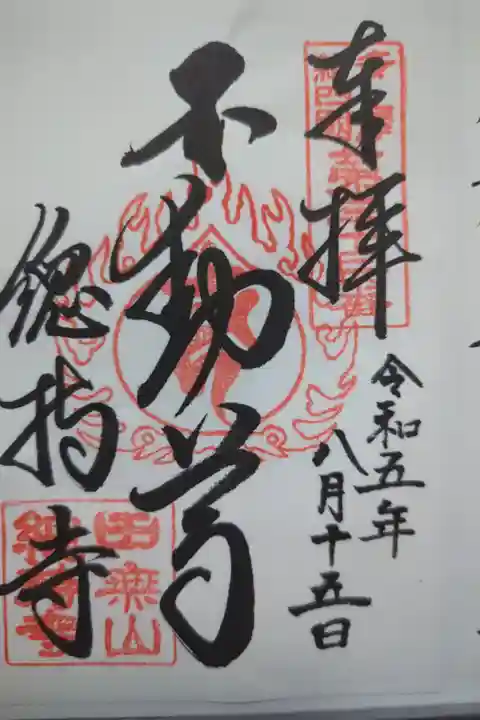 奉拝
令和五年
八月十五日
不動尊
總持寺
田無山
總持寺